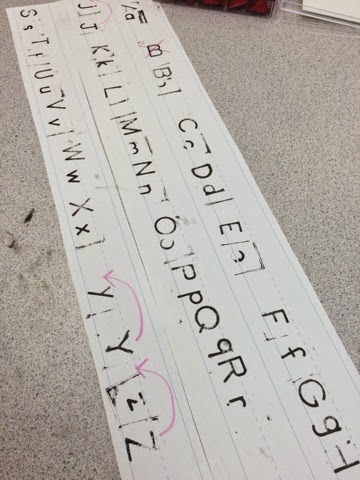 a B Bb Cc Dd Ee Ff Gg
jJ Kk Ll Mm Nn Oo Pp Qq Rr
Ss Tt Uu Vv Ww Xx yY zZ